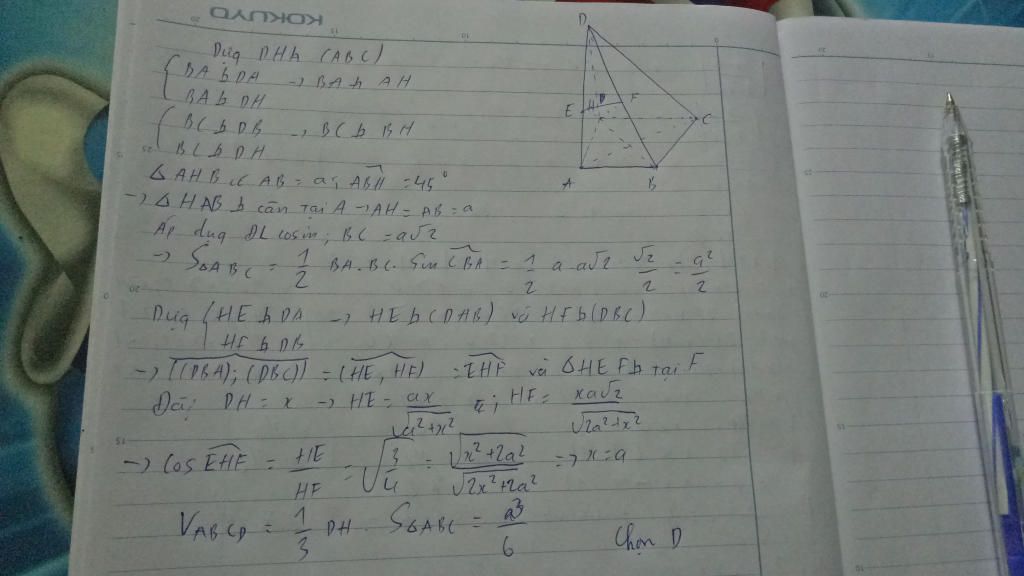 KOKUYO
Dựng DH ⊥ (ABC)
{ BA ⊥ DA → BA ⊥ AH
BA ⊥ DH
{ BC ⊥ DB → BC ⊥ BH
BC ⊥ DH
△AHB có AB = a; ABH = 45°
→ △HAB ⊥ cân tại A → AH = AB = a
Áp dụg ĐL cosin; BC = a√2
→ S△ABC = 1/2 BA.BC. Sin CBA = 1/2 a a√2 √2/2 = a²/2
Dựg { HE ⊥ DA → HE ⊥ (DAB) và HF ⊥ (DBC)
HF ⊥ DB
→ ((DBA); (DBC)) = (HE, HF) = EHF và △HEF ⊥ tại F
Đặt DH = x → HE = ax/√(a²+x²) ; HF = xa√2/√(2a²+x²)
→ Cos EHF = HE/HF = √(3/4) = √(x²+2a²)/√(2x²+2a²) => x = a
VABCD = 1/3 DH. S△ABC = a³/6 Chọn D
D
E H F
C
A B